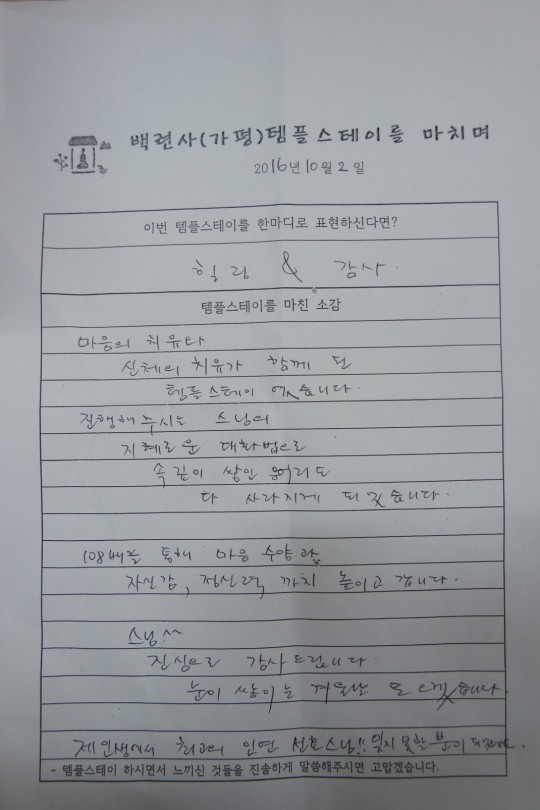 백련사(가평)템플스테이를 마치며
2016년 10월 2일
이번 템플스테이를 한마디로 표현하신다면?
힐링 & 감사.
템플스테이를 마친 소감
마음의 치유와
신체의 치유가 함께 된
템플스테이 였습니다.
진행해주시는 스님의
지혜로운 대화법으로
속 깊이 쌓인 응어리도
다 사라지게 되었습니다.
108배를 통해 마음 수양과
자신감, 정신력, 까지 높이고 갑니다.
스님^^
진심으로 감사드립니다.
눈이 쌓이는 겨울날 또 습니다.
제 인생에서 최고의 인연 선효스님!! 잊지 못할 분이
- 템플스테이 하시면서 느끼신 것들을 진솔하게 말씀해주시면 고맙겠습니다.